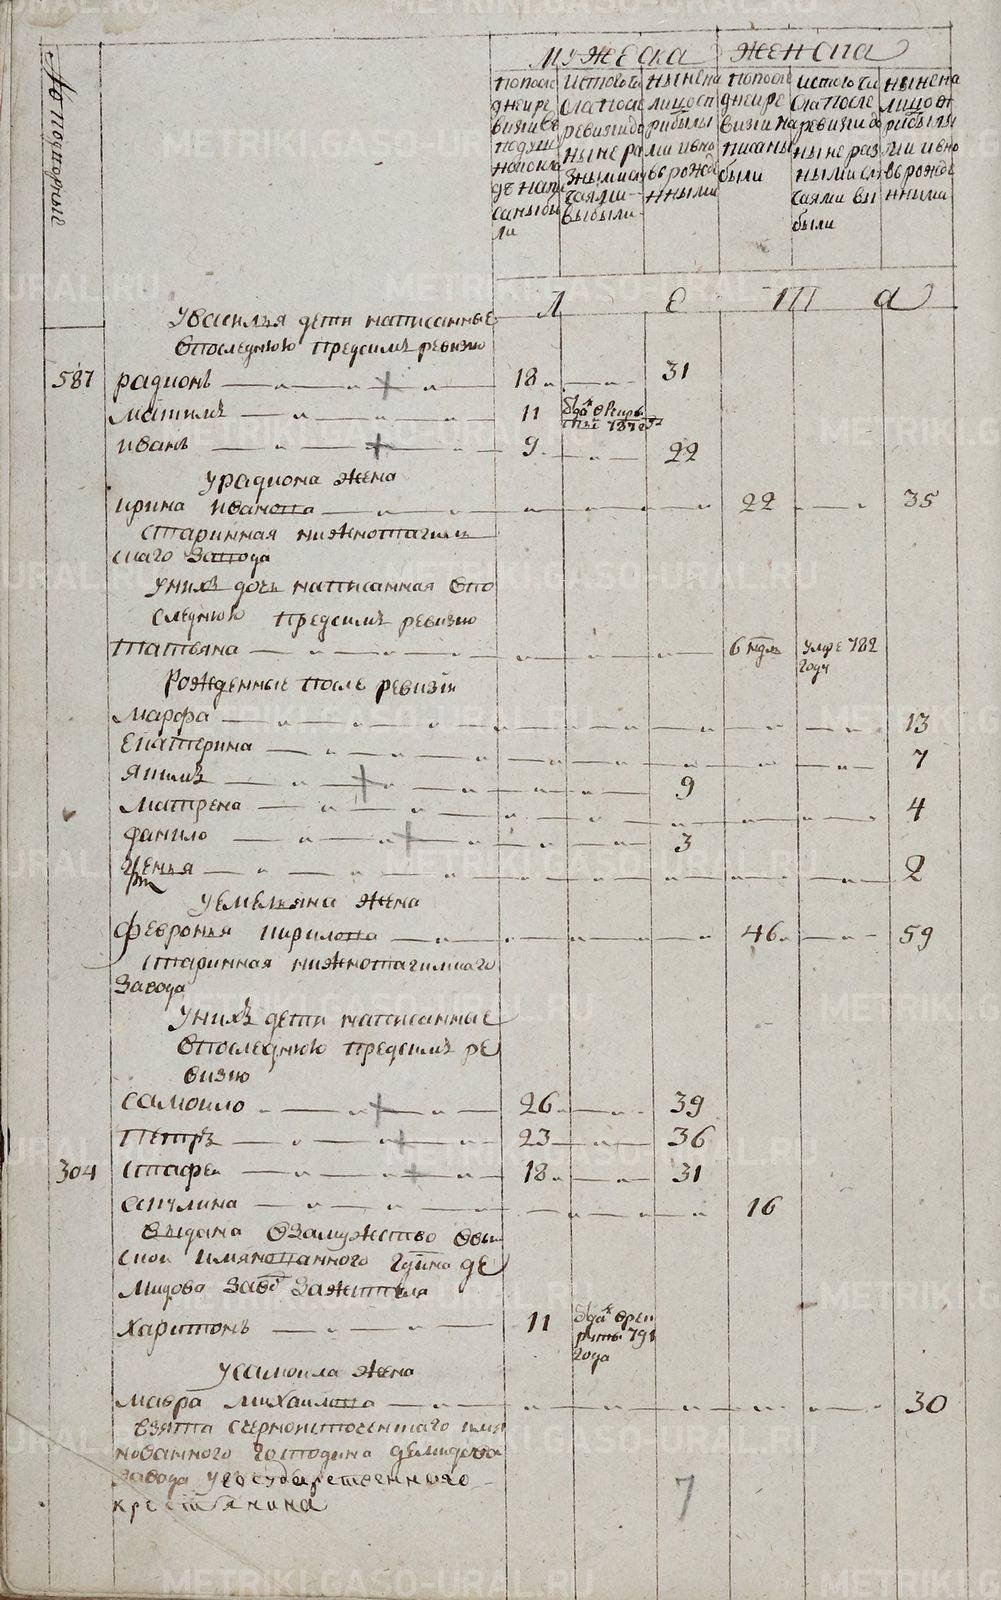 мужеска женска
№ подушные
по после
дней ре
визии въ
подуш
номъ окла
дѣ напи
саны бы
ли
ис того чи
сла после
ревизии до
ныне ра
зными слу
чаями
выбыли
ныне на
лицо съ
рибылы
ми и вно
въ рожде
нными
по после
дней ре
визии на
писаны
были
ис того чи
сла после
ревизии до
ныне раз
ными слу
чаями вы
были
ныне на
лицо съ
рибылы
ми и вно
въ рожде
нными
Л Е Т А
У василья дети написанные
впоследнюю предсимъ ревизию
587 радионъ 18 31
максимъ 11
иванъ 9 22
у радиона жена
ирина иванова 22 35
старинная нижнотагиль
скаго завода
у нихъ дочь написанная впо
следнюю предсимъ ревизию
татьяна 6 недль умре 782 году
Рожденные после ревизiи
марфа 13
екатерина 7
якимъ 9
матрена 4
данило 3
2
у емельяна жена
февронья кирилова 46 59
старинная нижнотагилскаго
завода
у нихъ дети написанные
впоследнюю предсимъ ре
визию
самоило 26 39
петръ 23 36
304 стафеи 18 31
акулина 16
выдана взамужество
имянованного гдина де
мидова завд зажителя
харитонъ 11 отда въ рек
руты 791
года
у самоила жена
мавра михаилова 30
взята счерноисточенскаго имя
нованного господина демидова
завода у государственного
крестьянина
7